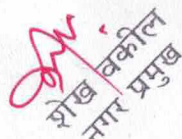 शेख वकील
नगर प्रमुख